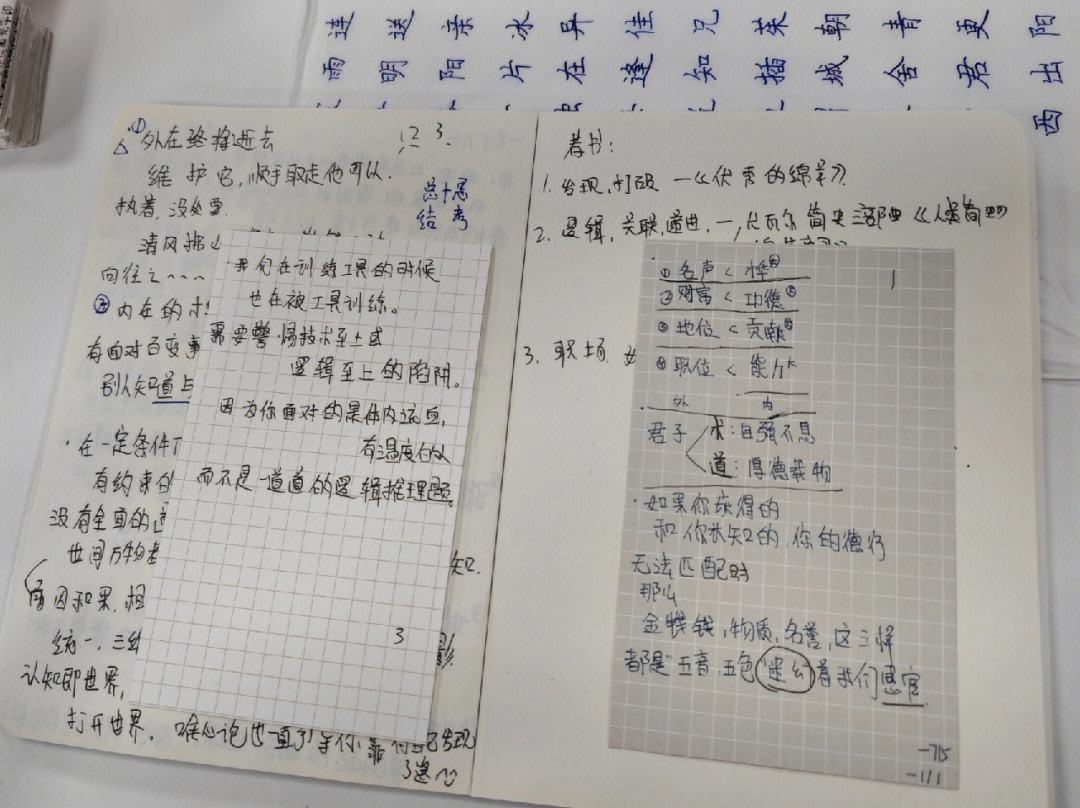 连 送 亲 冰 异 佳 兄 茱 朝 青 更 阳
雨 明 阳 片 在 逢 知 插 城 舍 君 出
西
△ ① 外在终将逝去
1 2 3.
维护它,顺手取走他可以.
执着,没必要.
总十思
结 考
清风拂
向往之~~~
② 内在的
有面对百变事
别人知道与
·在一定条件下
有约束的
没有全面的
世间万物
知.
有因和果.相
统一.三
影
认知即世界,
打开世界.
发现
我们在训练工具的时候
也在被工具训练。
需要警惕技术至上或
逻辑至上的陷阱。
因为你面对的是体内流血,
有温度的人
而不是一道道的逻辑推理题。
3
荐书:
1. 发现,打破 —《优秀的绵羊》
2. 逻辑,关联,通史.—,尤瓦尔 简史三部曲《人类简史》
3. 职场.
① 名声 <
1
② 财富 < 功德
③ 地位 < 贡献
④ 职位 < 能力
外 内
君子 术:自强不息
道:厚德载物
·如果你获得的
和你认知的,你的德行
无法匹配时
那么
金钱,物质,名誉,这三样
都是"五音,五色"迷幻着我们感官
-715
-111